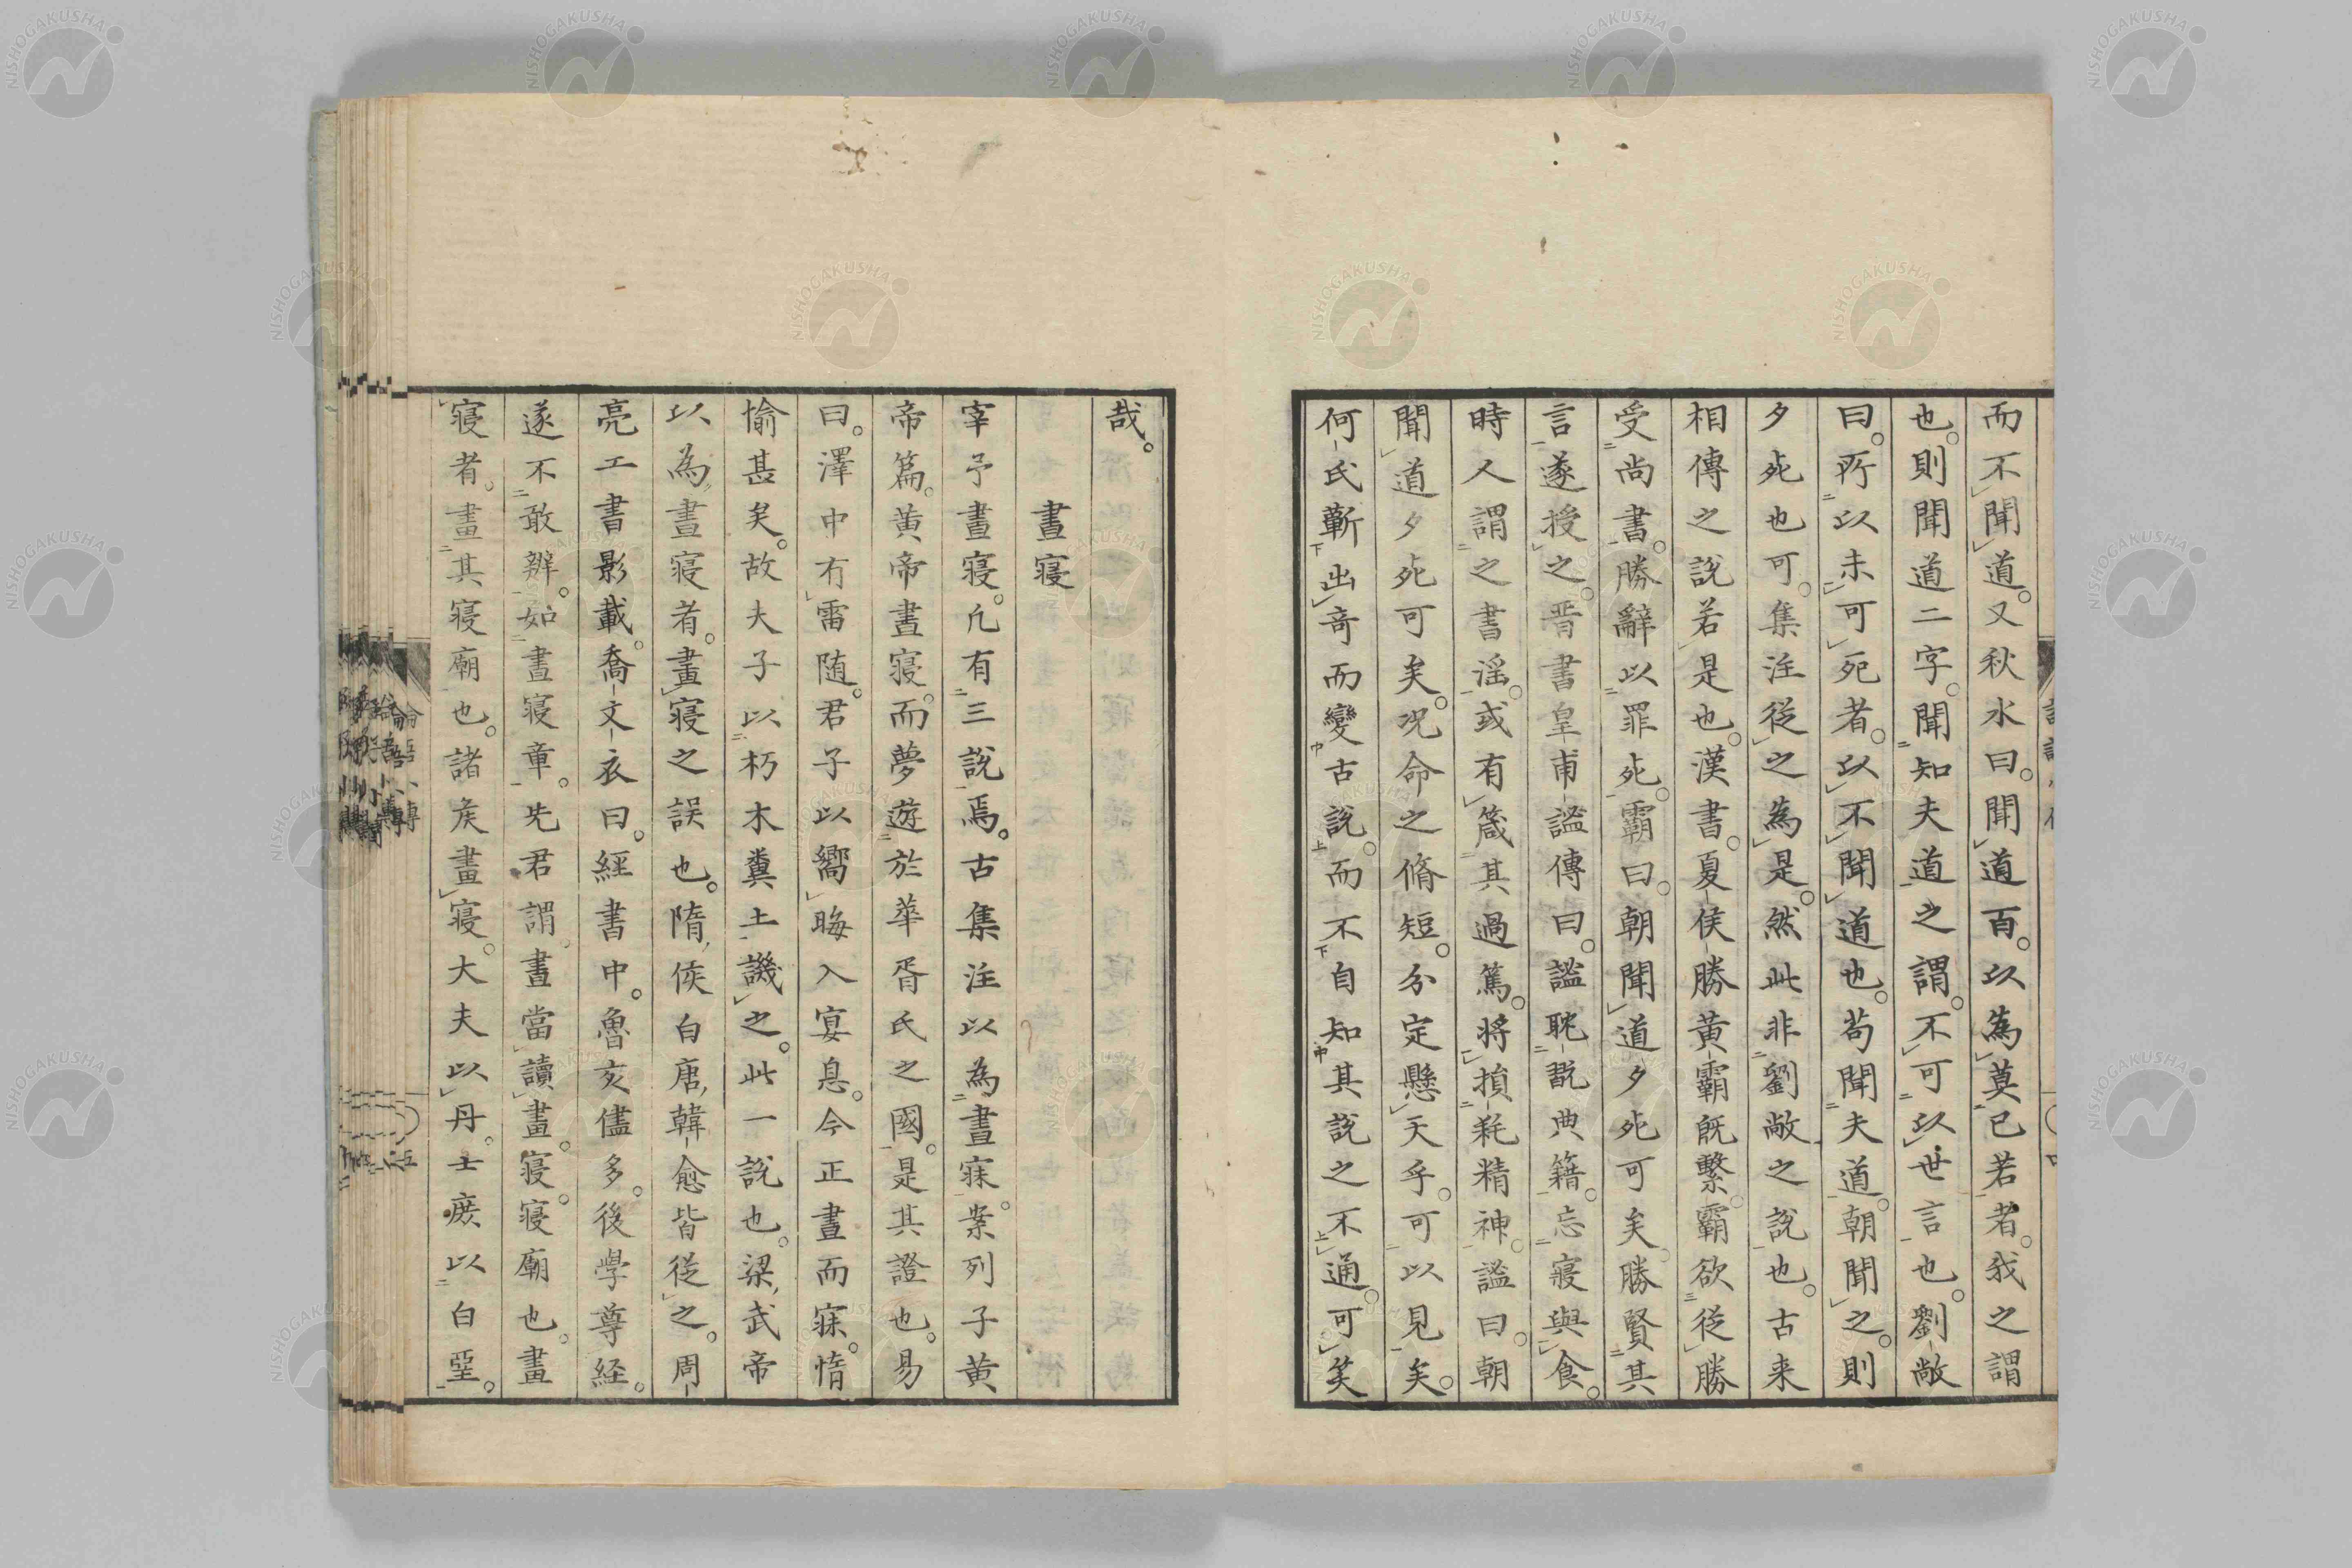 而不聞道。又秋水曰。聞道百。以為莫已若者。我之謂
也。則聞道二字。聞知夫道之謂。不可以世言也。劉敞
曰。所以未可死者。以不聞道也。苟聞夫道。朝聞之。則
夕死也可。集注從之為是。然此非劉敞之說也。古来
相傳之說若是也。漢書。夏侯勝黃霸既繫。霸欲從勝
受尚書。勝辭以罪死。霸曰。朝聞道夕死可矣。勝賢其
言遂授之。晋書皇甫謐傳曰。謐耽翫典籍。忘寢與食。
時人謂之書淫。或有箴其過篤。將損耗精神。謐曰。朝
聞道夕死可矣。况命之脩短。分定懸天乎。可以見矣。
何氏蘄出奇而變古說。而不自知其說之不通。可笑
哉。
晝寢
宰予晝寢。凢有三說焉。古集注以為晝寐。案列子黃
帝篇。黄帝晝寢。而夢遊於華胥氏之國。是其證也。易
曰。澤中有雷隨。君子以嚮晦入宴息。今正晝而寐。惰
愉甚矣。故夫子以朽木糞土譏之。此一說也。梁武帝
以為晝寢者。畫寢之誤也。隋侯白唐韓愈皆從之。周
亮工書影載。喬文衣曰。經書中。魯亥儘多。後學尊經。
遂不敢辨。如晝寢章。先君謂。晝當讀畫。寢。寢廟也。畫
寢者。畫其寢廟也。諸矦畫寢。大夫以丹。士庶以白堊。